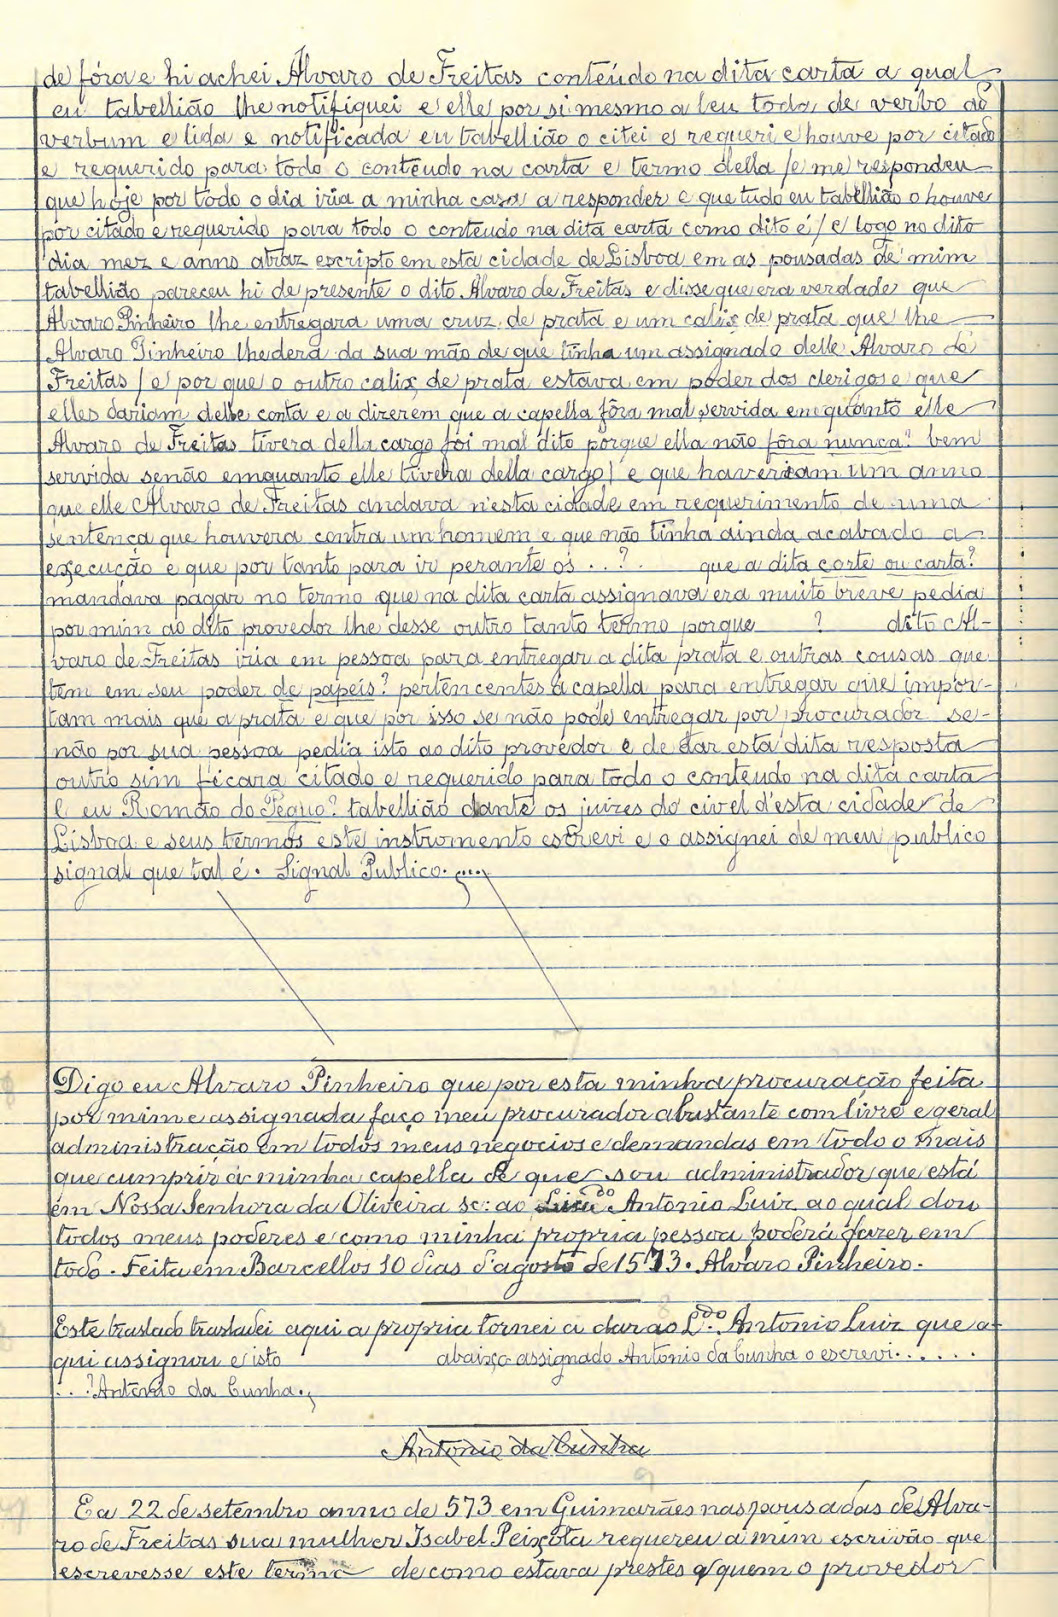 de fóra e hi achei Alvaro de Freitas conteúdo na dita carta a qual
eu tabellião lhe notifiquei e elle por si mesmo a leu toda de verbo ad
verbum e lida e notificada eu tabellião o citei e requeri e houve por citado
e requerido para todo o conteudo na carta e termo della / e me respondeu
que hoje por todo o dia iria a minha casa a responder e que tudo eu tabellião o houve
por citado e requerido para todo o conteudo na dita carta como dito é / e logo no dito
dia mez e anno atraz escripto em esta cidade de Lisboa em as pousadas de mim
tabellião pareceu hi de presente o dito Alvaro de Freitas e disse que era verdade que
Alvaro Pinheiro lhe entregara uma cruz de prata e um calix de prata que lhe
Alvaro Pinheiro lhe dera da sua mão de que tinha um assignado delle Alvaro de
Freitas / e por que o outro calix de prata estava em poder dos clerigos e que
elles dariam delle conta e a dizerem que a capella fôra mal servida emquanto elle
Alvaro de Freitas tivera della cargo foi mal dito porque ella não fôra nunca? bem
servida senão emquanto elle tivera della cargo / e que haveriam um anno
que elle Alvaro de Freitas andava n'esta cidade em requerimento de uma
sentença que houvera contra um homem e que não tinha ainda acabado a
execução e que por tanto para ir perante os ...? que a dita corte ou carta?
mandava pagar no termo que na dita carta assignava era muito breve pedia
por mim ao dito provedor lhe desse outro tanto termo porque ? dito Al-
varo de Freitas iria em pessoa para entregar a dita prata e outras cousas que
tem em seu poder de papeis? pertencentes á capella para entregar que impor-
tam mais que a prata e que por isso se não pode entregar por procurador se-
não por sua pessoa pedia isto ao dito provedor e de dar esta dita resposta
outro sim ficara citado e requerido para todo o conteudo na dita carta
E eu Romão do Pequo? tabellião dante os juizes do civel d'esta cidade de
Lisboa e seus termos este instromento escrevi e o assignei de meu publico
signal que tal é. Signal Publico.
Digo eu Alvaro Pinheiro que por esta minha procuração feita
por mim e assignada faço meu procurador abastante com livre e geral
administração em todos meus negocios e demandas em todo o mais
que cumprir á minha capella de que sou administrador que está
em Nossa Senhora da Oliveira sc: ao Antonio Luiz ao qual dou
todos meus poderes e como minha propria pessoa poderá fazer em
todo. Feita em Barcellos 10 dias d'agosto de 1573. Alvaro Pinheiro.
Este traslado trasladei aqui a propria tornei a dar ao L.do Antonio Luiz que a-
qui assignou e isto abaixo assignado Antonio da Cunha o escrevi......
...? Antonio da Cunha.
Antonio da Cunha
E a 22 de setembro anno de 573 em Guimarães nas pousadas de Alva-
ro de Freitas sua mulher Isabel Peixota requereu a mim escrivão que
escrevesse este termo de como estava prestes q quem o provedor